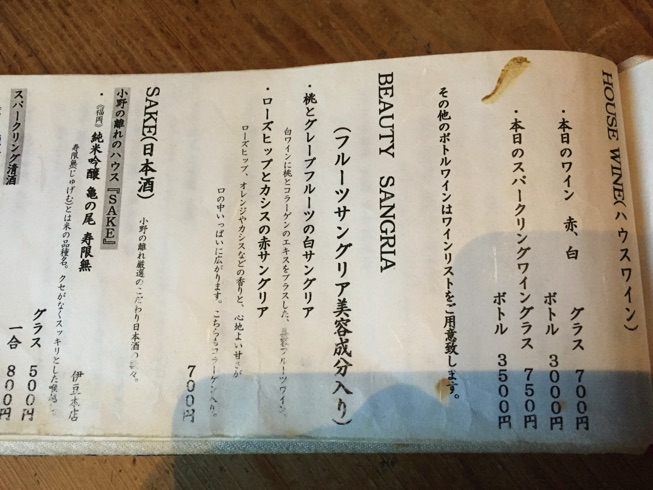 HOUSE WINE(ハウスワイン)
・本日のワイン 赤、白 グラス 700円
ボトル 3000円
・本日のスパークリングワイングラス 750円
ボトル 3500円
その他のボトルワインはワインリストをご用意致します。
BEAUTY SANGRIA
(フルーツサングリア美容成分入り)
・桃とグレープフルーツの白サングリア
白ワインに桃とコラーゲンのエキスをプラスした、フルーツワイン。
・ローズヒップとカシスの赤サングリア
ローズヒップ、オレンジやカシスなどの香りと、心地よい甘さが
口の中いっぱいに広がります。こちらもコラーゲン入り。
700円
SAKE(日本酒) 小野の離れ厳選のこだわり日本酒の
小野の離れのハウス『SAKE』
・《福岡》純米吟醸 亀の尾 寿限無 伊豆本店
寿限無(じゅげむ)とは米の品種名。クセがなくスッキリとした
グラス 500円
一合 800円
スパークリング清酒